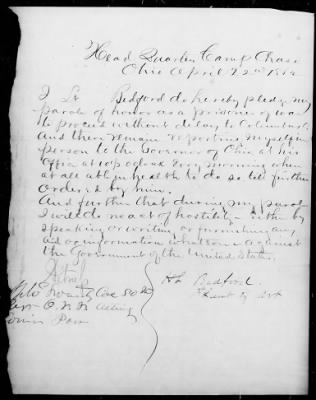 Head Quarters Camp Chase
Ohio April 22nd 1862
I Lt Bedford do hereby pledge my
parole of honor as a prisoner of war
to proceed without delay to Columbus
And then remain reporting myself in
person to the Governor of Ohio at his
Office at 10 o clock Every morning when
at all able in health to do so till further
Orders by him.
And further that during my parole
I will do no act of hostility Either by
speaking or writing or furnishing any
aid or information whatsoever against
the Government of the United States.
H L Bedford
Lieut of Art